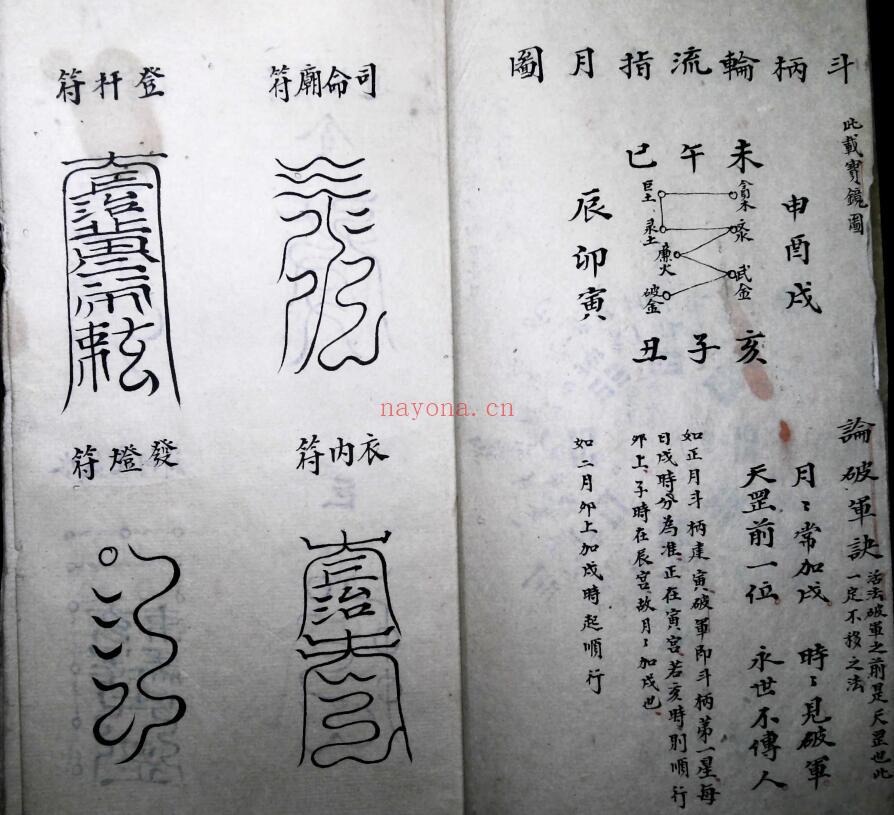 斗柄輪流指月圖
此載寶鏡圖
巳午未
申酉戌
辰卯寅
丑子亥
巨土
貪木
彔土
文水
廉火
武金
破金
論破軍訣
活法破軍之前是天罡也此
一定不移之法
月〻常加戌 時〻見破軍
天罡前一位 永世不傳人
如正月斗柄建寅破軍即斗柄第一星每
日戌時分為准正在寅宮若亥時則順行
卯上子時在辰宮故月〻加戌也
如二月卯上加戌時起順行
司命廟符
登杆符
衣內符
發燈符
nayona.cn